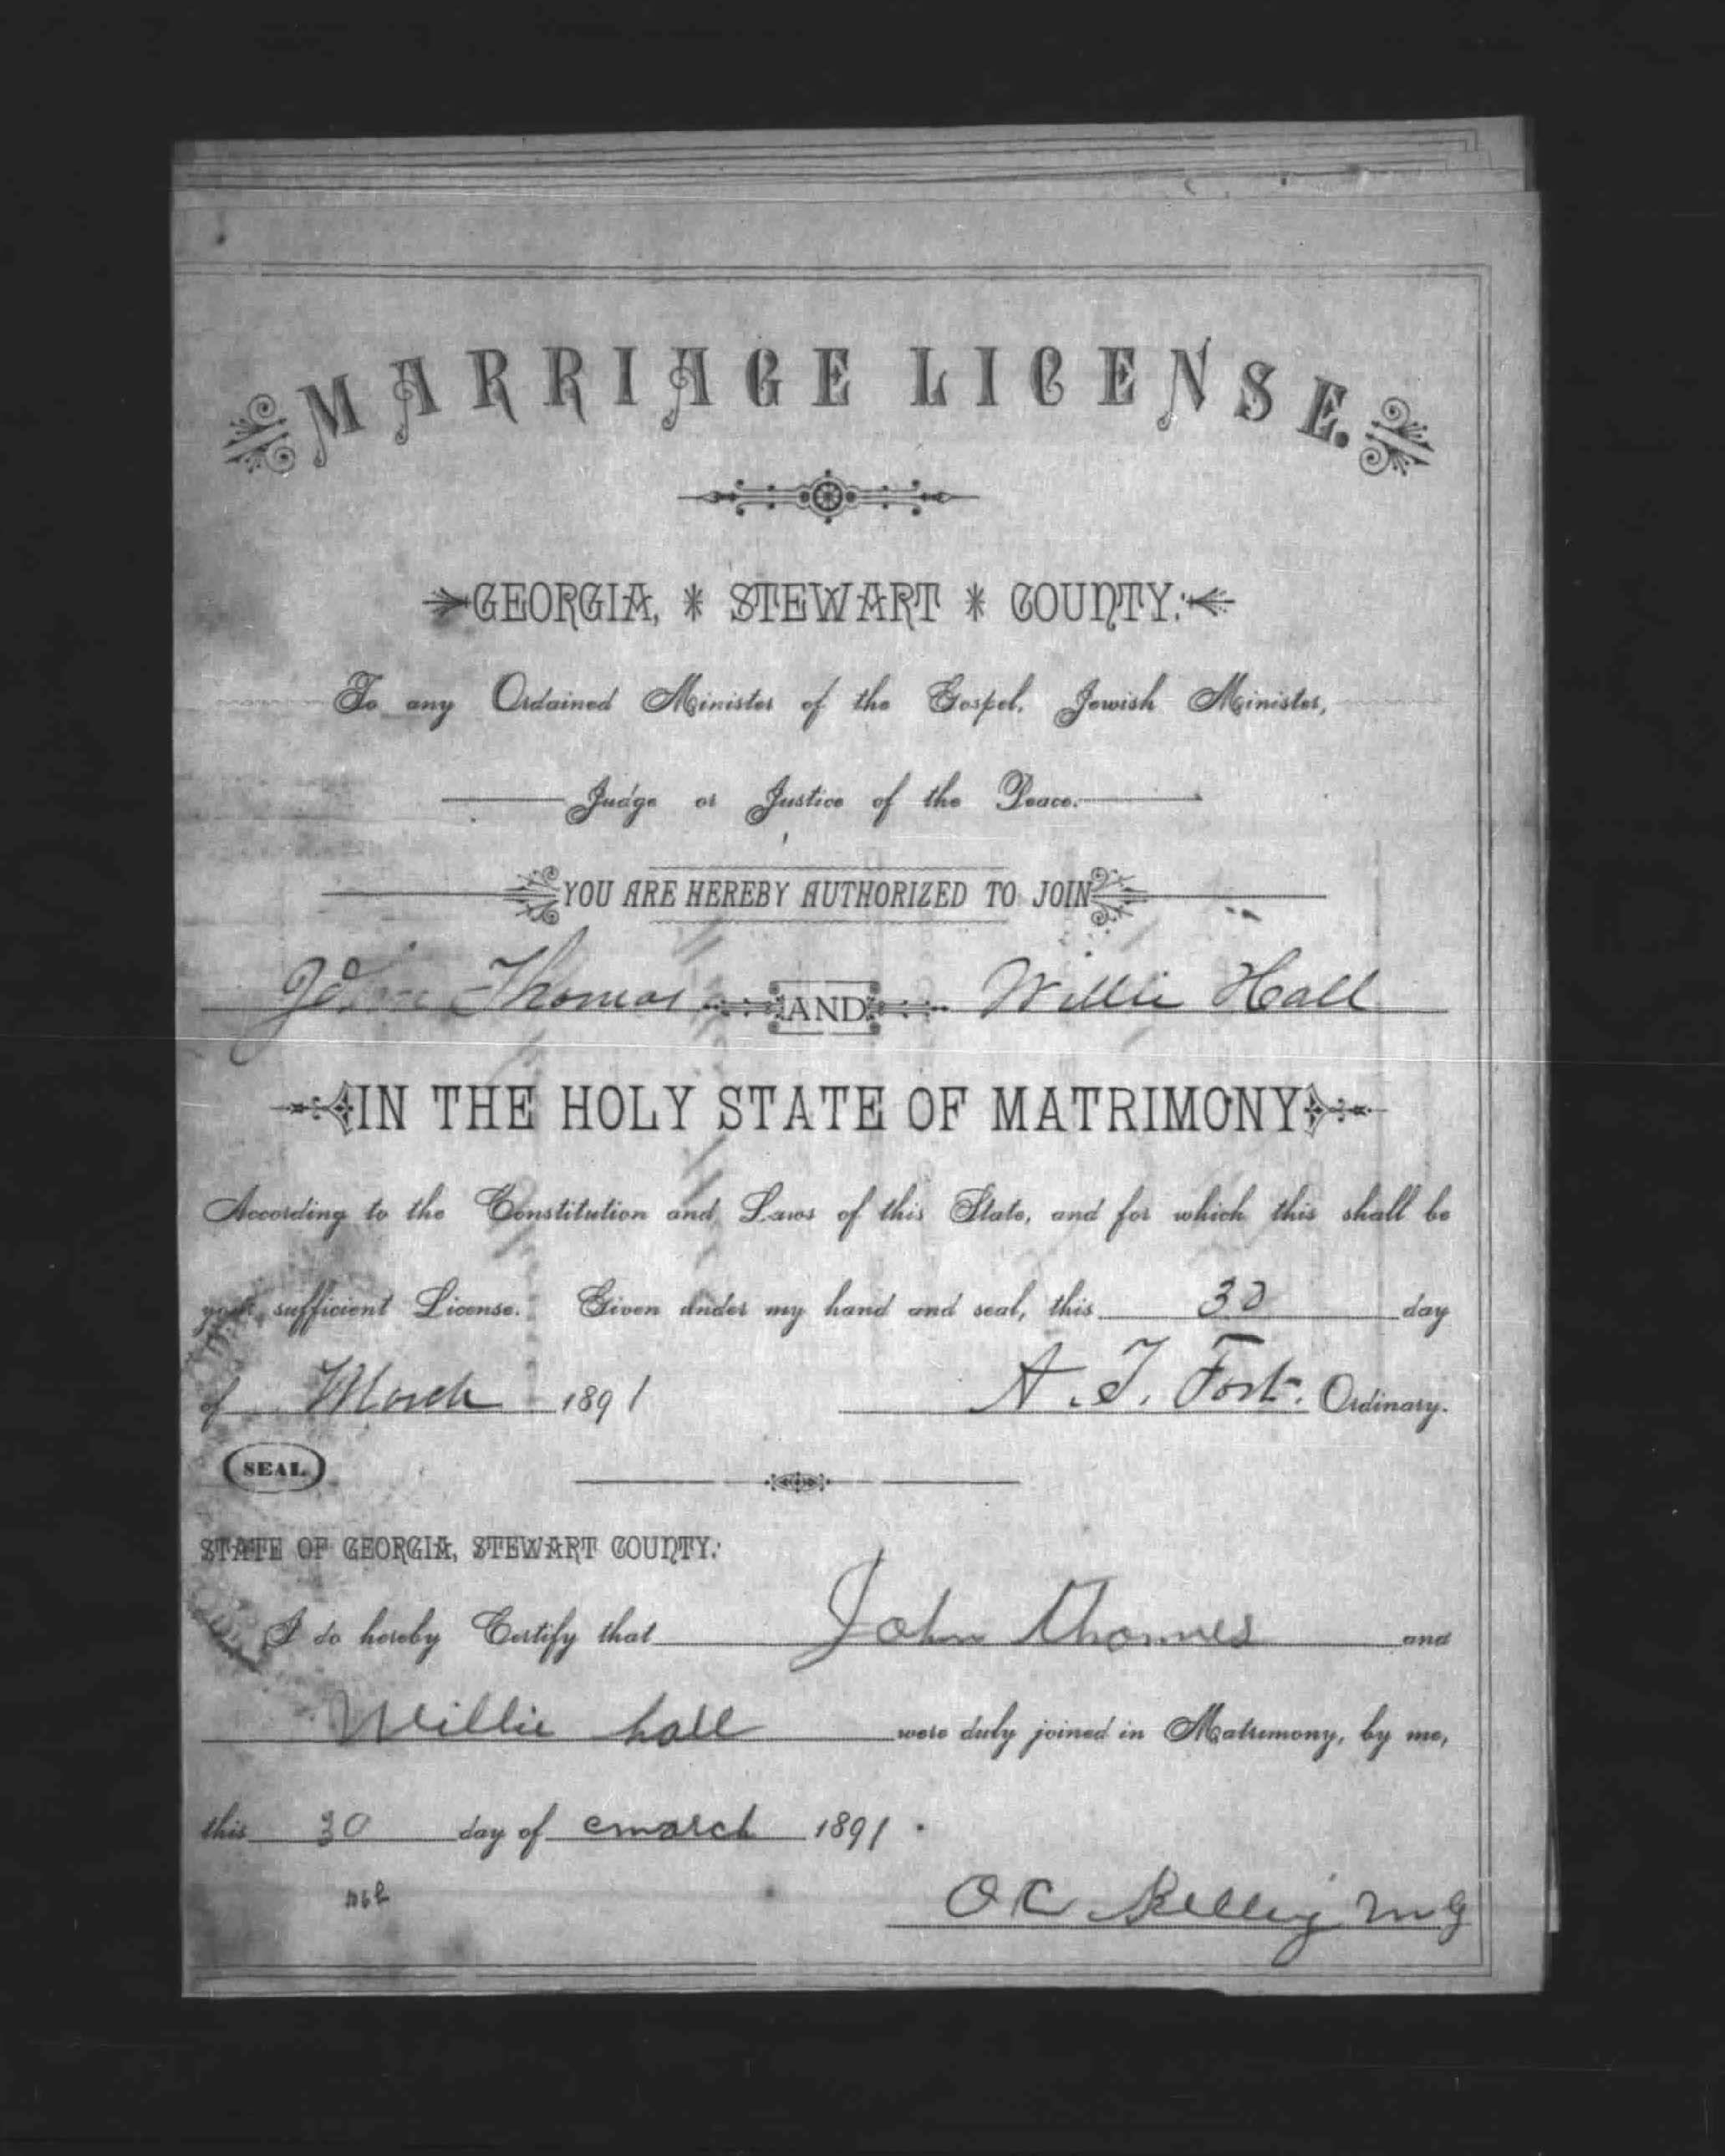 MARRIAGE LICENSE.
GEORGIA, * STEWART * COUNTY:
To any Ordained Minister of the Gospel, Jewish Minister,
Judge or Justice of the Peace.
YOU ARE HEREBY AUTHORIZED TO JOIN
John Thomas AND Willie Hall
IN THE HOLY STATE OF MATRIMONY
According to the Constitution and Laws of this State, and for which this shall be
your sufficient License. Given under my hand and seal, this 30 day
of March 1891 A. T. Fort. Ordinary.
SEAL
STATE OF GEORGIA, STEWART COUNTY:
I do hereby Certify that John Thomes and
Willie hall were duly joined in Matrimony, by me,
this 30 day of march 1891
O C Kelley M G